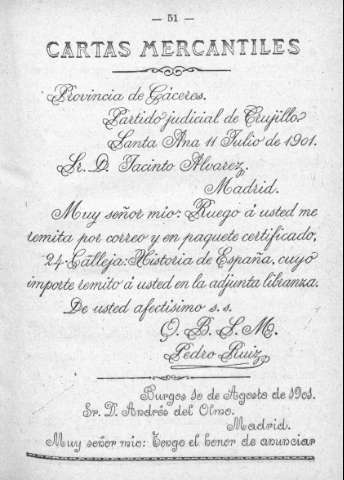 — 51 —
CARTAS MERCANTILES
Provincia de Cáceres.
Partido judicial de Trujillo.
Santa Ana 11 Julio de 1901.
Sr. D. Jacinto Alvarez,
Madrid.
Muy señor mio: Ruego á usted me
remita por correo y en paquete certificado,
24-Calleja: Historia de España, cuyo
importe remito á usted en la adjunta libranza.
De usted afectisimo s. s.
Q. B. S. M.
Pedro Ruiz
Burgos 10 de Agosto de 1901.
Sr. D. Andrés del Olmo.
Madrid.
Muy señor mio: Tengo el honor de anunciar